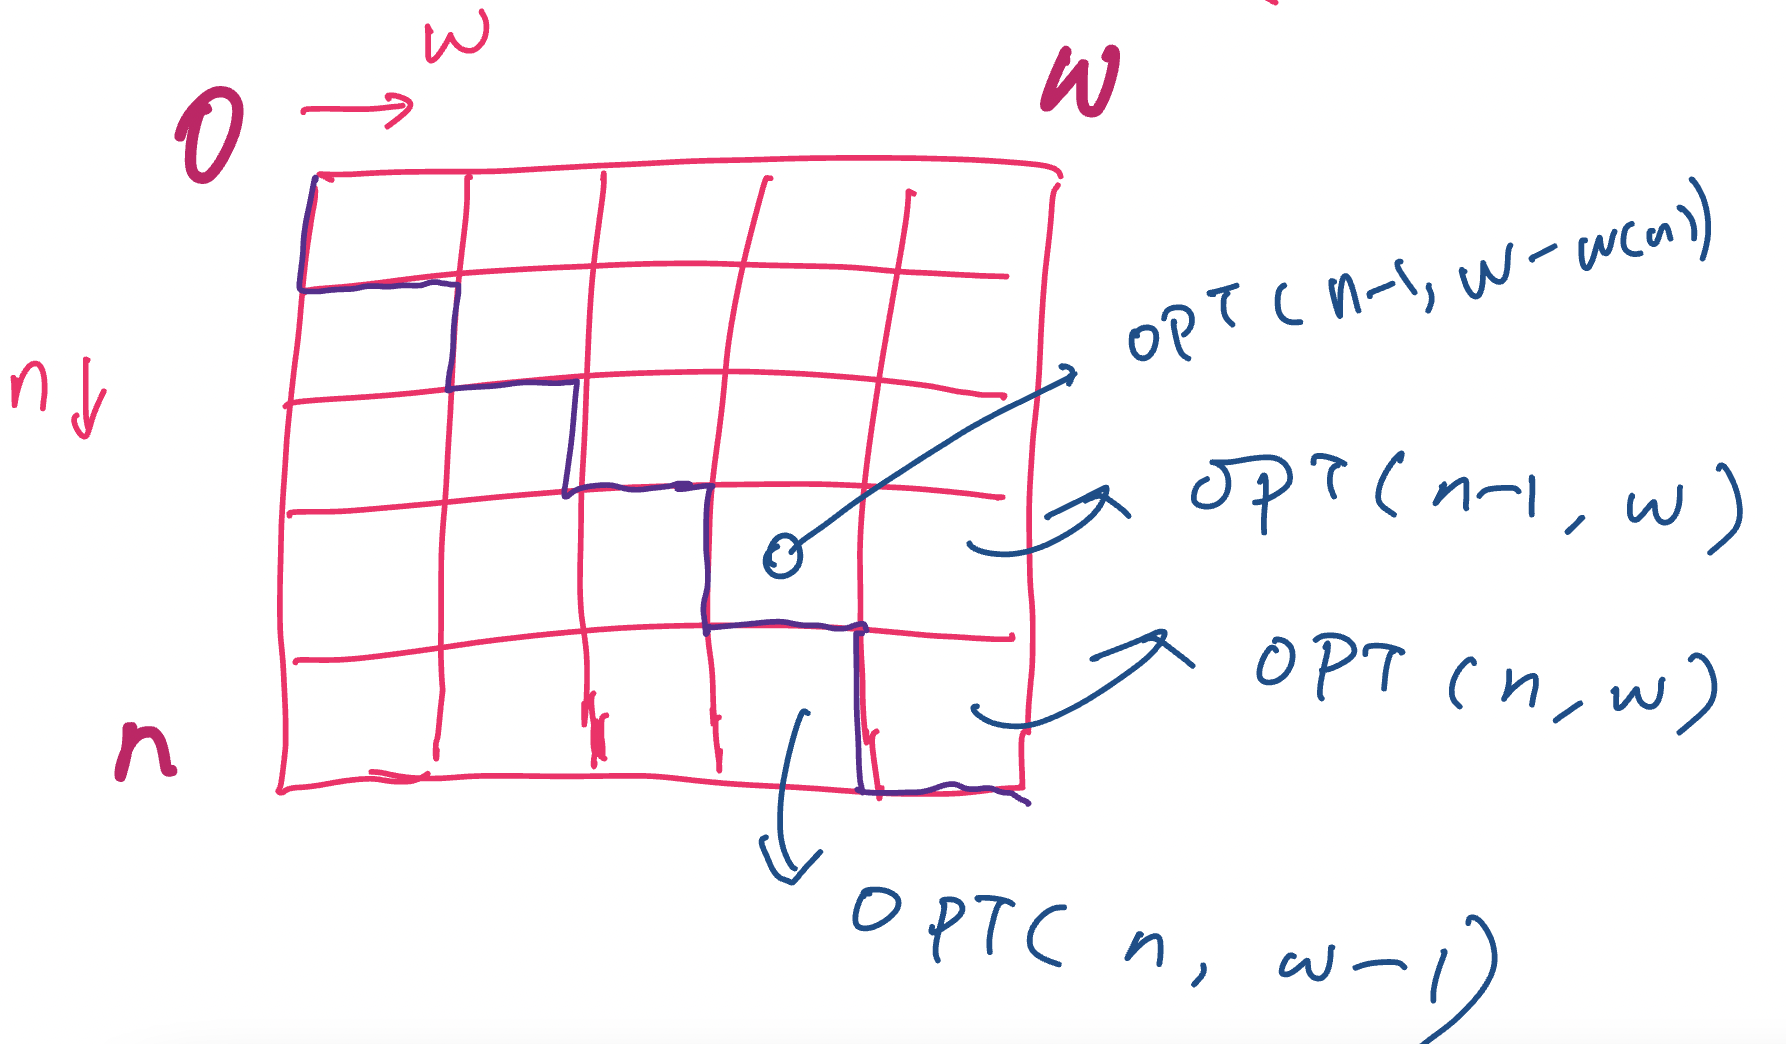 w
0 → W
OPT(n-1, W-w(n))
n ↓
OPT(n-1, W)
OPT(n, W)
n
OPT(n, W-1)